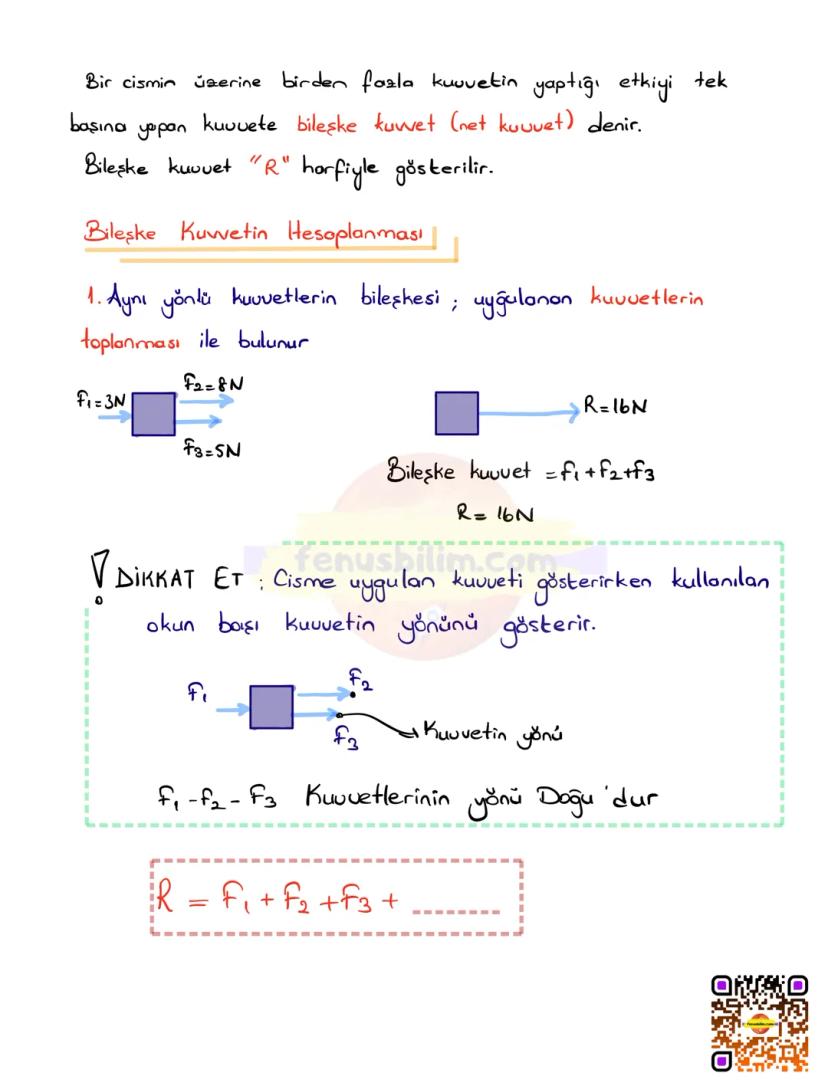 Bir cismin üzerine birden fazla kuvvetin yaptığı etkiyi tek
başına yapan kuvvete bileşke kuvvet (net kuvvet) denir.
Bileşke kuvvet "R" harfiyle gösterilir.
Bileşke Kuvvetin Hesaplanması
1. Aynı yönlü kuvvetlerin bileşkesi ; uyğulanan kuvvetlerin
toplanması ile bulunur
F1=3N
F2=8N
F3=5N
R=16N
Bileşke kuvvet =F1+F2+F3
R= 16N
fenusbilim.com
! DİKKAT ET : Cisme uygulan kuvveti gösterirken kullanılan
okun başı kuvvetin yönünü gösterir.
F1
F2
F3
Kuvvetin yönü
F1-F2-F3 Kuvvetlerinin yönü Doğu'dur
R = F1+F2+F3+ ........
fenusbilim.com